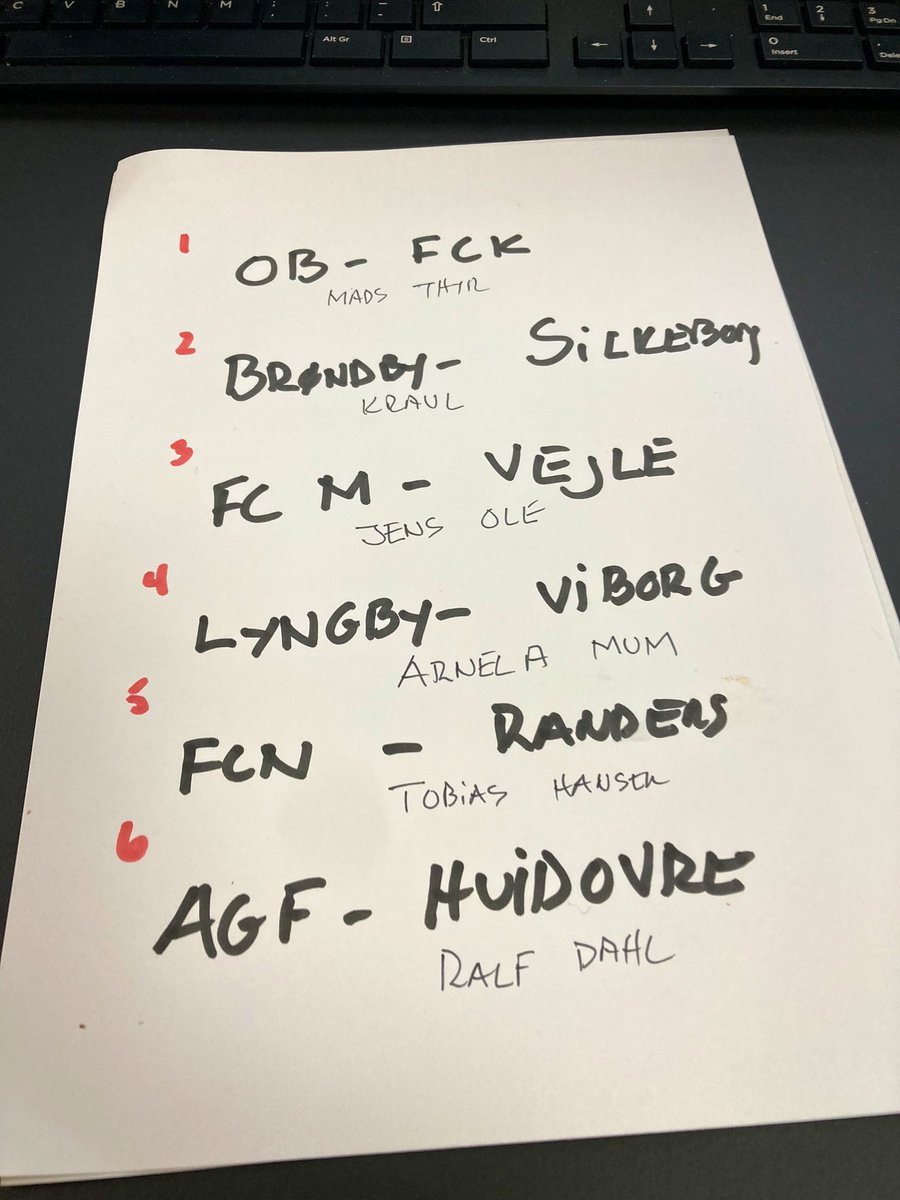 C V B N M ; : - ⇧
Alt Gr Ctrl ↑ ← ↓ → 1 End 2 ↓ 3 PgDn 0 Insert . Dele
1 OB - FCK
MADS THYR
2 BRØNDBY - SiLKEBORG
KRAUL
3 FC M - VEJLE
JENS OLE
4 LYNGBY - ViBORG
ARNELA MUM
5 FCN - RANDERS
TOBiAS HANSEN
6 AGF - HViDOVRE
RALF DAHL